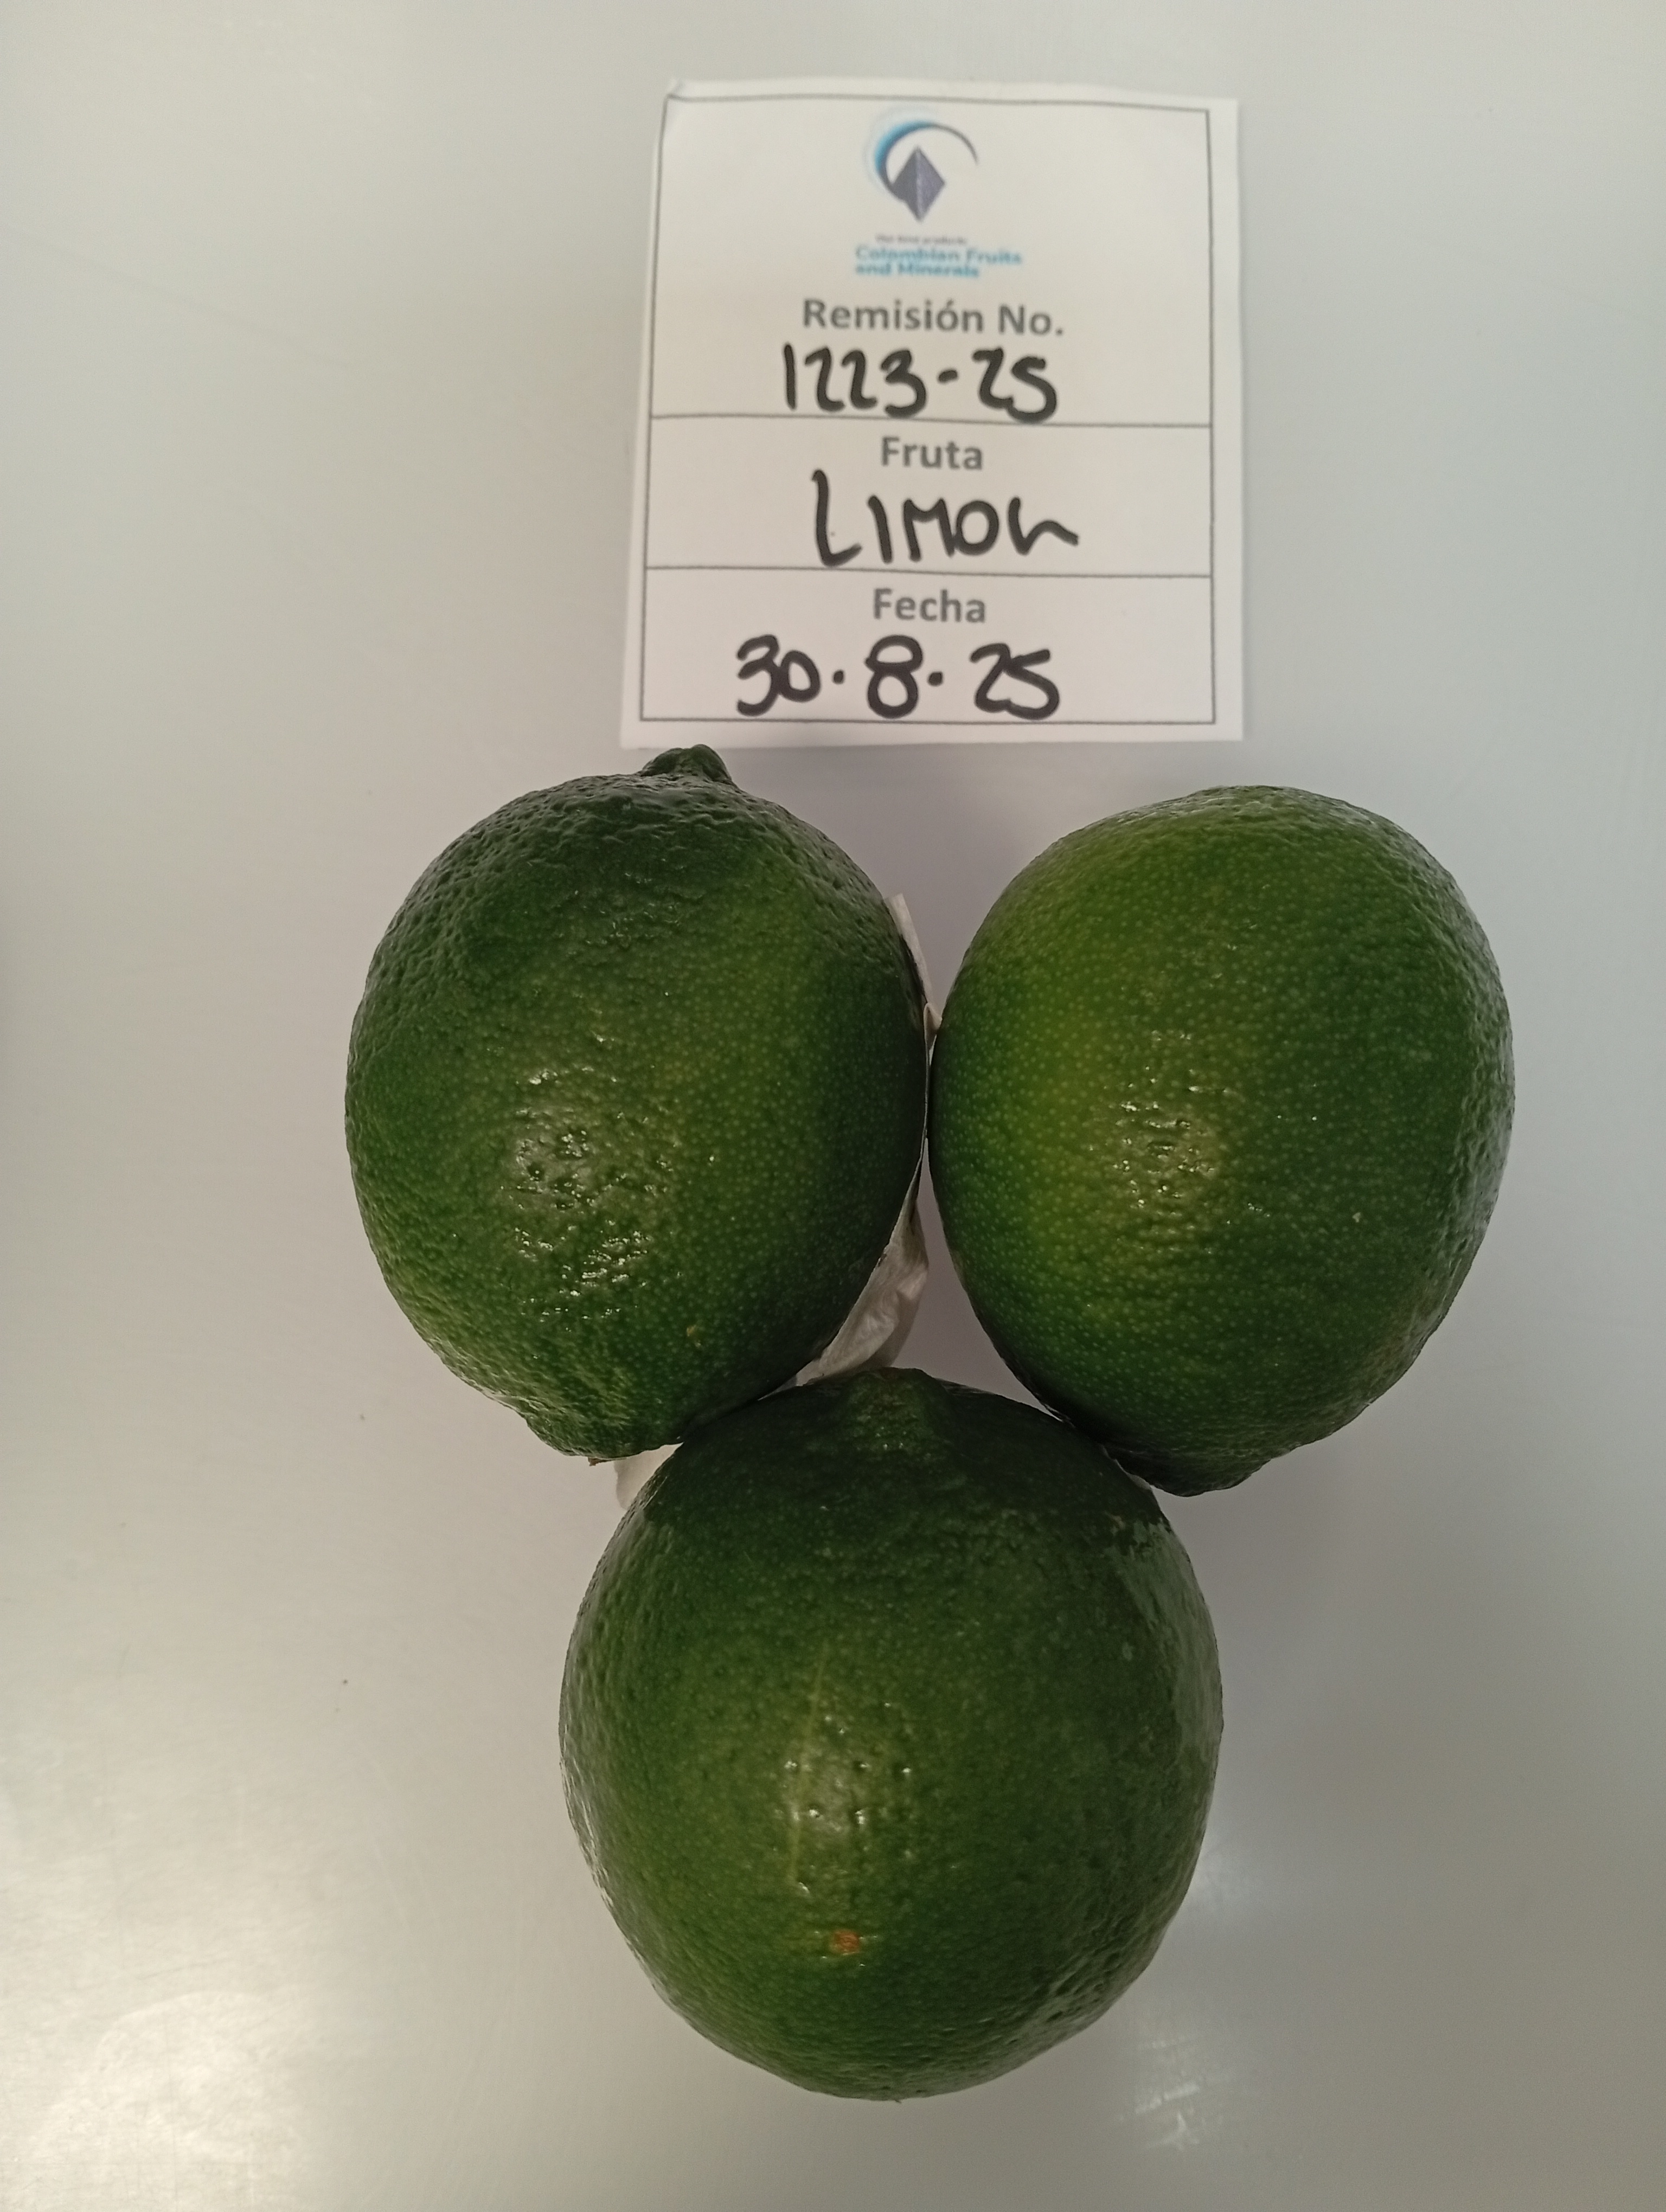 Colombian Fruits
and Minerals
Remisión No.
1223-25
Fruta
LIMON
Fecha
30.8.25